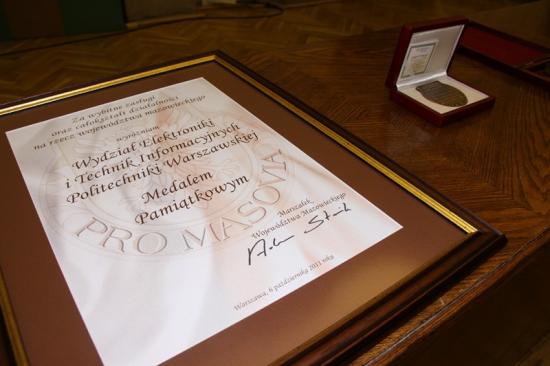 Za wybitne zasługi
oraz całokształt działalności
na rzecz województwa mazowieckiego
wyróżniam
Wydział Elektroniki
i Technik Informacyjnych
Politechniki Warszawskiej
Medalem
Pamiątkowym
PRO MASOVIA
Marszałek
Województwa Mazowieckiego
Warszawa, 6 października 2011 roku